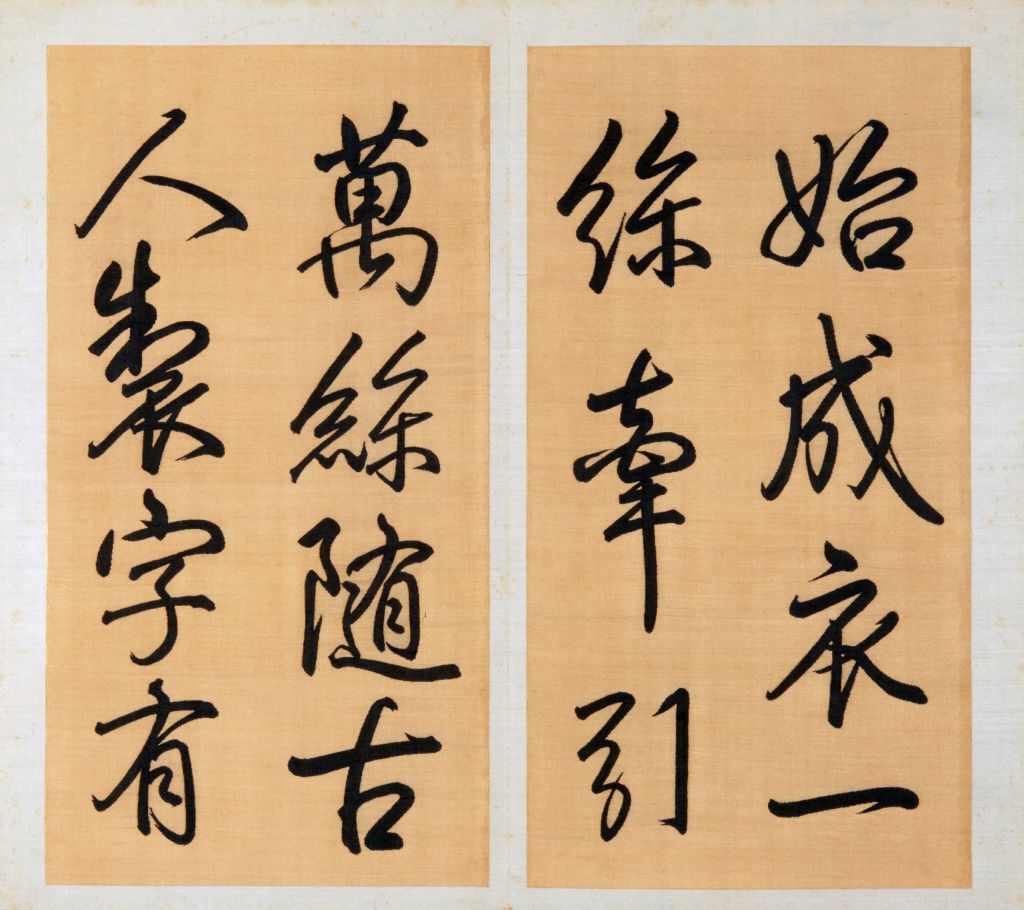 始成衣一
絲牽引
萬絲随古
人製字有